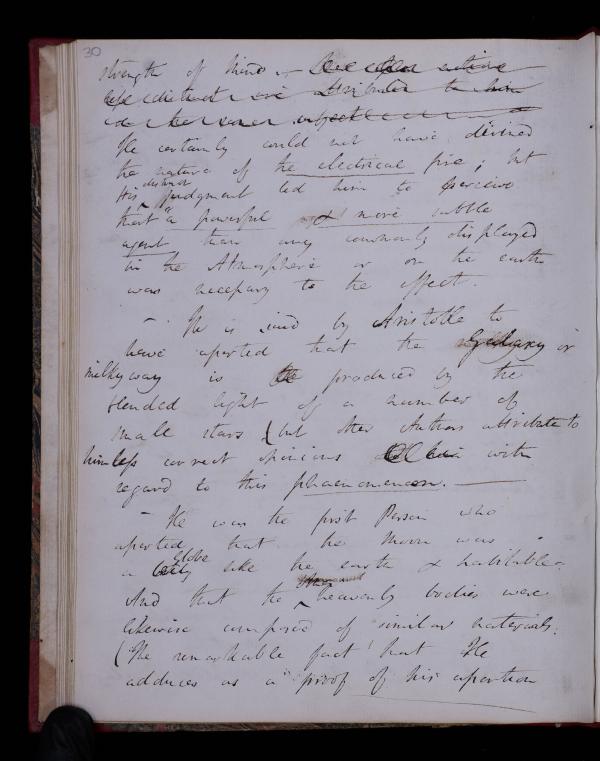 30
strength of mind. -
He certainly could not have divined
the nature of the electrical fire; but
distinct
His judgment led him to perceive
that "a powerful & more subtle
agent than any commonly displayed
in the Atmosphere or on the earth
was necessary to the effect.
- He is said by Aristotle to
have asserted that the Galaxy or
milky way is produced by the
blended light of a number of
small stars (but other Authors attribute to
him less correct opinions with
regard to this phaenomenon. -
- He was the first Person who
asserted that the Moon was
Globe
a like the earth & habitable.
And that the heavenly bodies were
likewise composed of similar materials.
(The remarkable fact that He
adduces as a proof of his assertion